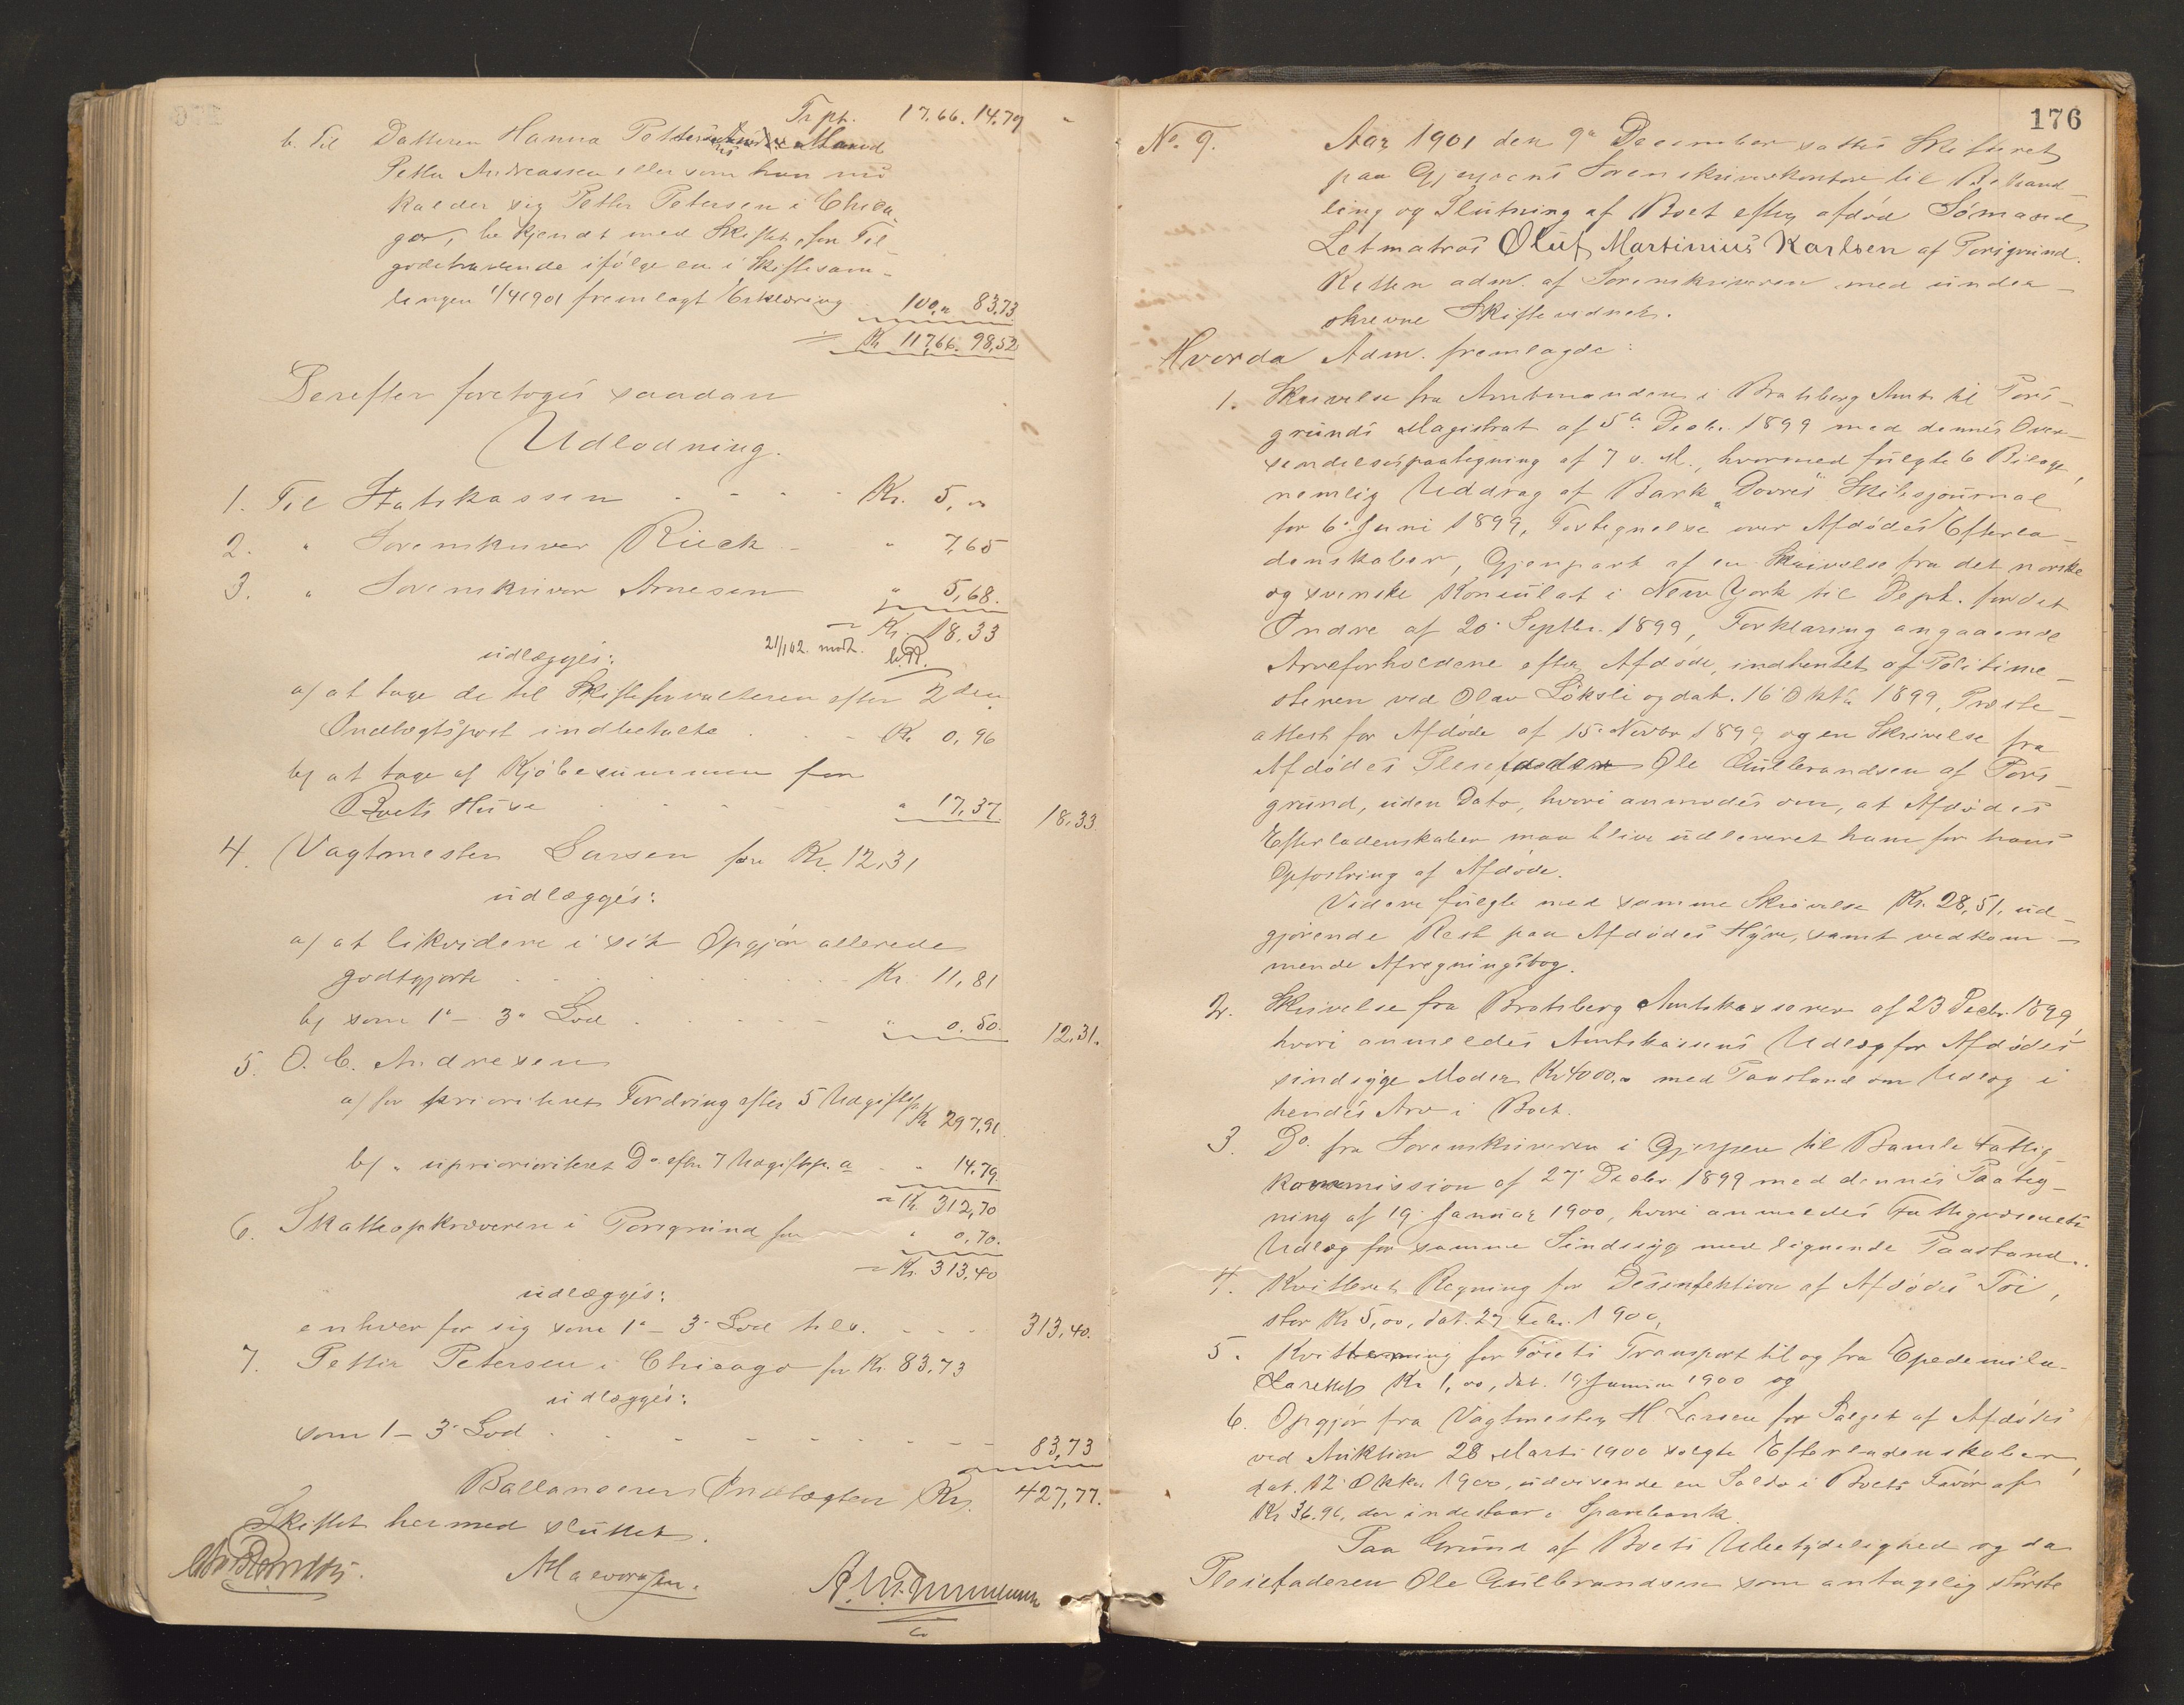 Trpt. 17.66. 14.79
b. Til Datteren Hanna Pettersens Mand
Petter Andreassen eller som han nu
kalder sig Petter Petersen i Chica-
gor, be kjendt med Skiftet, for Til
godehavende ifölge en i Skiftesam-
lingen 1/4 1901 fremlagt Erklæring 100,„ 83,73
= Kr 117,66. 98,52
Derefter foretoges saadan
Udlodning.
1. Til Statskassen Kr. 5,„
2. " Sorenskriver Rieck " 7,65
3. " Sorenskriver Arnesen " 5,68.
= Kr. 18,33
udlægges: 21/1 02. modt.
a/ at tage de til Skifteforvalteren efter 2den
Indtægtspost indbetalte Kr 0,96
b/ at tage af Kjöbesummen for
Boets Huse " 17,37 18,33
4. Vagtmester Larsen for Kr. 12,31
udlægges:
a/ at likvidere i sit Opgjör allerede
godtgjorte Kr 11,81
b/ som 1ste - 3die Lod " 0.50. 12,31.
5. O. C. Andresen
a/ for prioriteret Fordring efter 5 Udgiftsp. Kr 297,91.
b/ " uprioriteret Do. efter 7 Udgiftsp. a " 14.79
= Kr. 312,70
6. Skatteopkræveren i Porsgrund for " 0,70.
= Kr. 313,40
udlægges:
enhver for sig som 1ste - 3die Lod tils. 313,40.
7. Petter Petersen i Chicago for Kr. 83.73
udlægges:
som 1 - 3die Lod 83,73
Ballancerer Indtægten Kr. 427,77.
Skiftet hermed sluttet.
176
No. 9. Aar 1901 den 9de December sattes Skifteret
paa Gjerpens Sorenskriverkontor til Behand-
ling og Slutning af Boet efter afdöd Sömand
Letmatros Oluf Martinius Karlsen af Porsgrund.
Retten adm. af Sorenskriveren med under-
skrevne Skiftevidner.
Hvorda Adm. fremlagde:
1. Skrivelse fra Amtmanden i Bratsberg Amt til Pors-
grunds Magistrat af 5te Decbr. 1899 med dennes Over-
sendelsespaategning af 7 s. M., hvormed fulgte 6 Bilage,
nemlig Uddrag af Bark „Dovres" Skibsjournal
for 6te Juni 1899, Fortegnelse over Afdödes Efterla-
denskaber, Gjenpart af en Skrivelse fra det norske
og svenske Konsulat i New York til Dept. for det
Indre af 20de Septbr. 1899, Forklaring angaaende
Arveforholdene efter Afdöde, indhentet af Politime-
steren ved Olav Löksli og dat. 16 Oktbr 1899, Præste-
attest for Afdöde af 15de Novbr 1899 og en Skrivelse fra
Afdödes Pleiefader Ole Gulbrandsen af Pors-
grund, uden Dato, hvori anmodes om, at Afdödes
Efterladenskaber maa blive udleveret ham for hans
Opfostring af Afdöde.
Videre fulgte med samme Skrivelse Kr. 28,51, ud-
gjörende Rest paa Afdödes Hyre, samt vedkom-
mende Afregningsbog.
2. Skrivelse fra Bratsberg Amtskasserer af 23 Decbr. 1899,
hvori anmeldes Amtskassens Udlæg for Afdödes
sindsyge Moder Kr 4000,„ med Paastand om Udlæg i
hendes Arv i Boet.
3. Do. fra Sorenskriveren i Gjerpen til Bamle Fattig-
kommission af 27de Decbr 1899 med dennes Paateg-
ning af 19. Januar 1900, hvori anmeldes Fattigvæsenets
Udlæg for samme Sindssyg med lignende Paastand.
4. Kvitteret Regning for Desinfektion af Afdödes Töi,
stor Kr 5,00, dat. 27 Febr. 1900,
5. Kvittering for Töiets Transport til og fra Epedemila-
zarettet Kr 1,00, dat. 19. Januar 1900 og
6. Opgjör fra Vagtmester H Larsen for Salget af Afdödes
ved Auktion 28 Marts 1900 solgte Efterladenskaber,
dat. 12 Oktbr 1900, udvisende en Saldo i Boets Favör af
Kr 36.96, der indestaar i Sparebank.
Paa Grund af Boets Ubetydelighed og da
Pleiefaderen Ole Gulbrandsen som antagelig störste